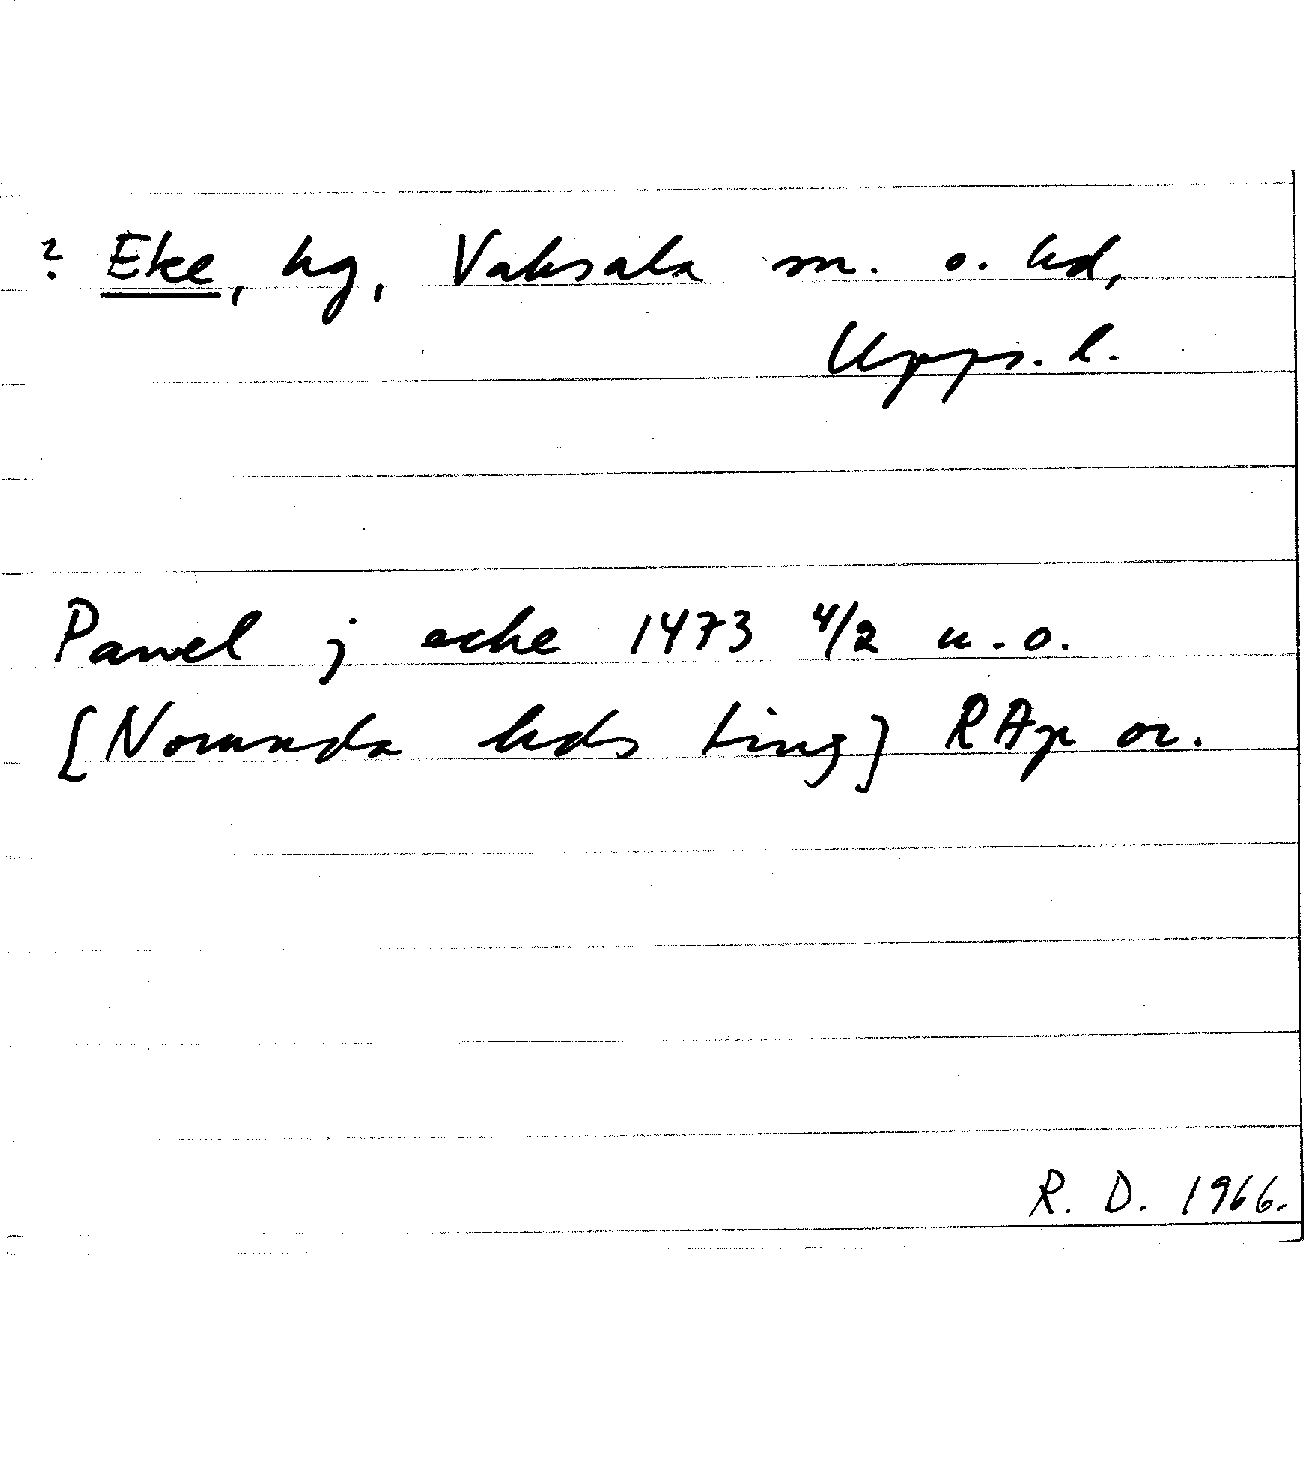 ? Eke, hg, Vaksala sn. o. hd,
Upps. l.
Pawel j eche 1473 4/2 u. o.
[Norunda hds ting] RAp or.
R. D. 1966.